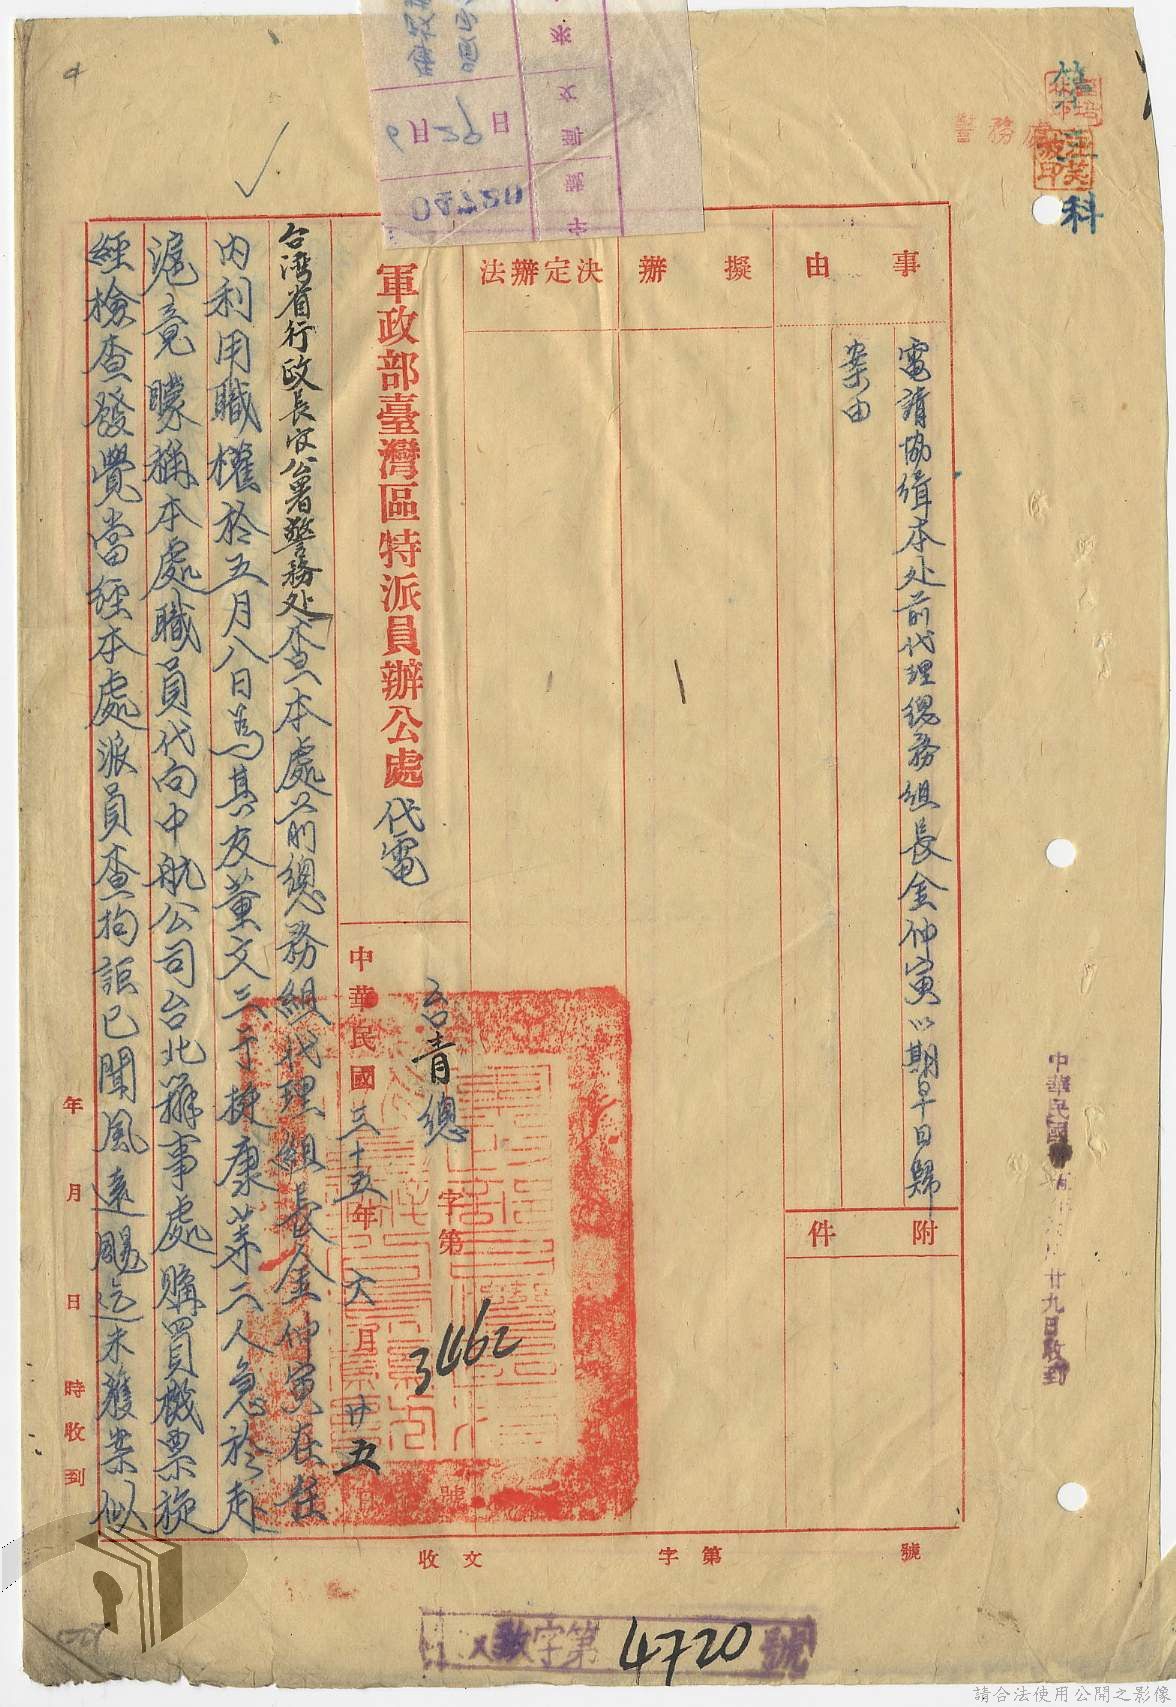 事由
電請協緝本处前代理總務組長金仲寅以期早日歸
案由
附件
擬辦
決定辦法
軍政部臺灣區特派員辦公處代電
青總
字第
3462
號
中華民國三十五年六月廿五
台湾省行政長官公署警務处查本處前總務組代理組長金仲寅在任
內利用職權於五月八日為其友董文三于挺康等二人急於赴
滬竟矇稱本處職員代向中航公司台北辦事處購買機票旋
經檢查發覺當經本處派員查拘詎已聞風遠颺迄未獲案似
年月日時收到
收文字第號
字第4720號
中華民國
廿九日收到
警務處
科
6月29日
04720
請合法使用公開之影像